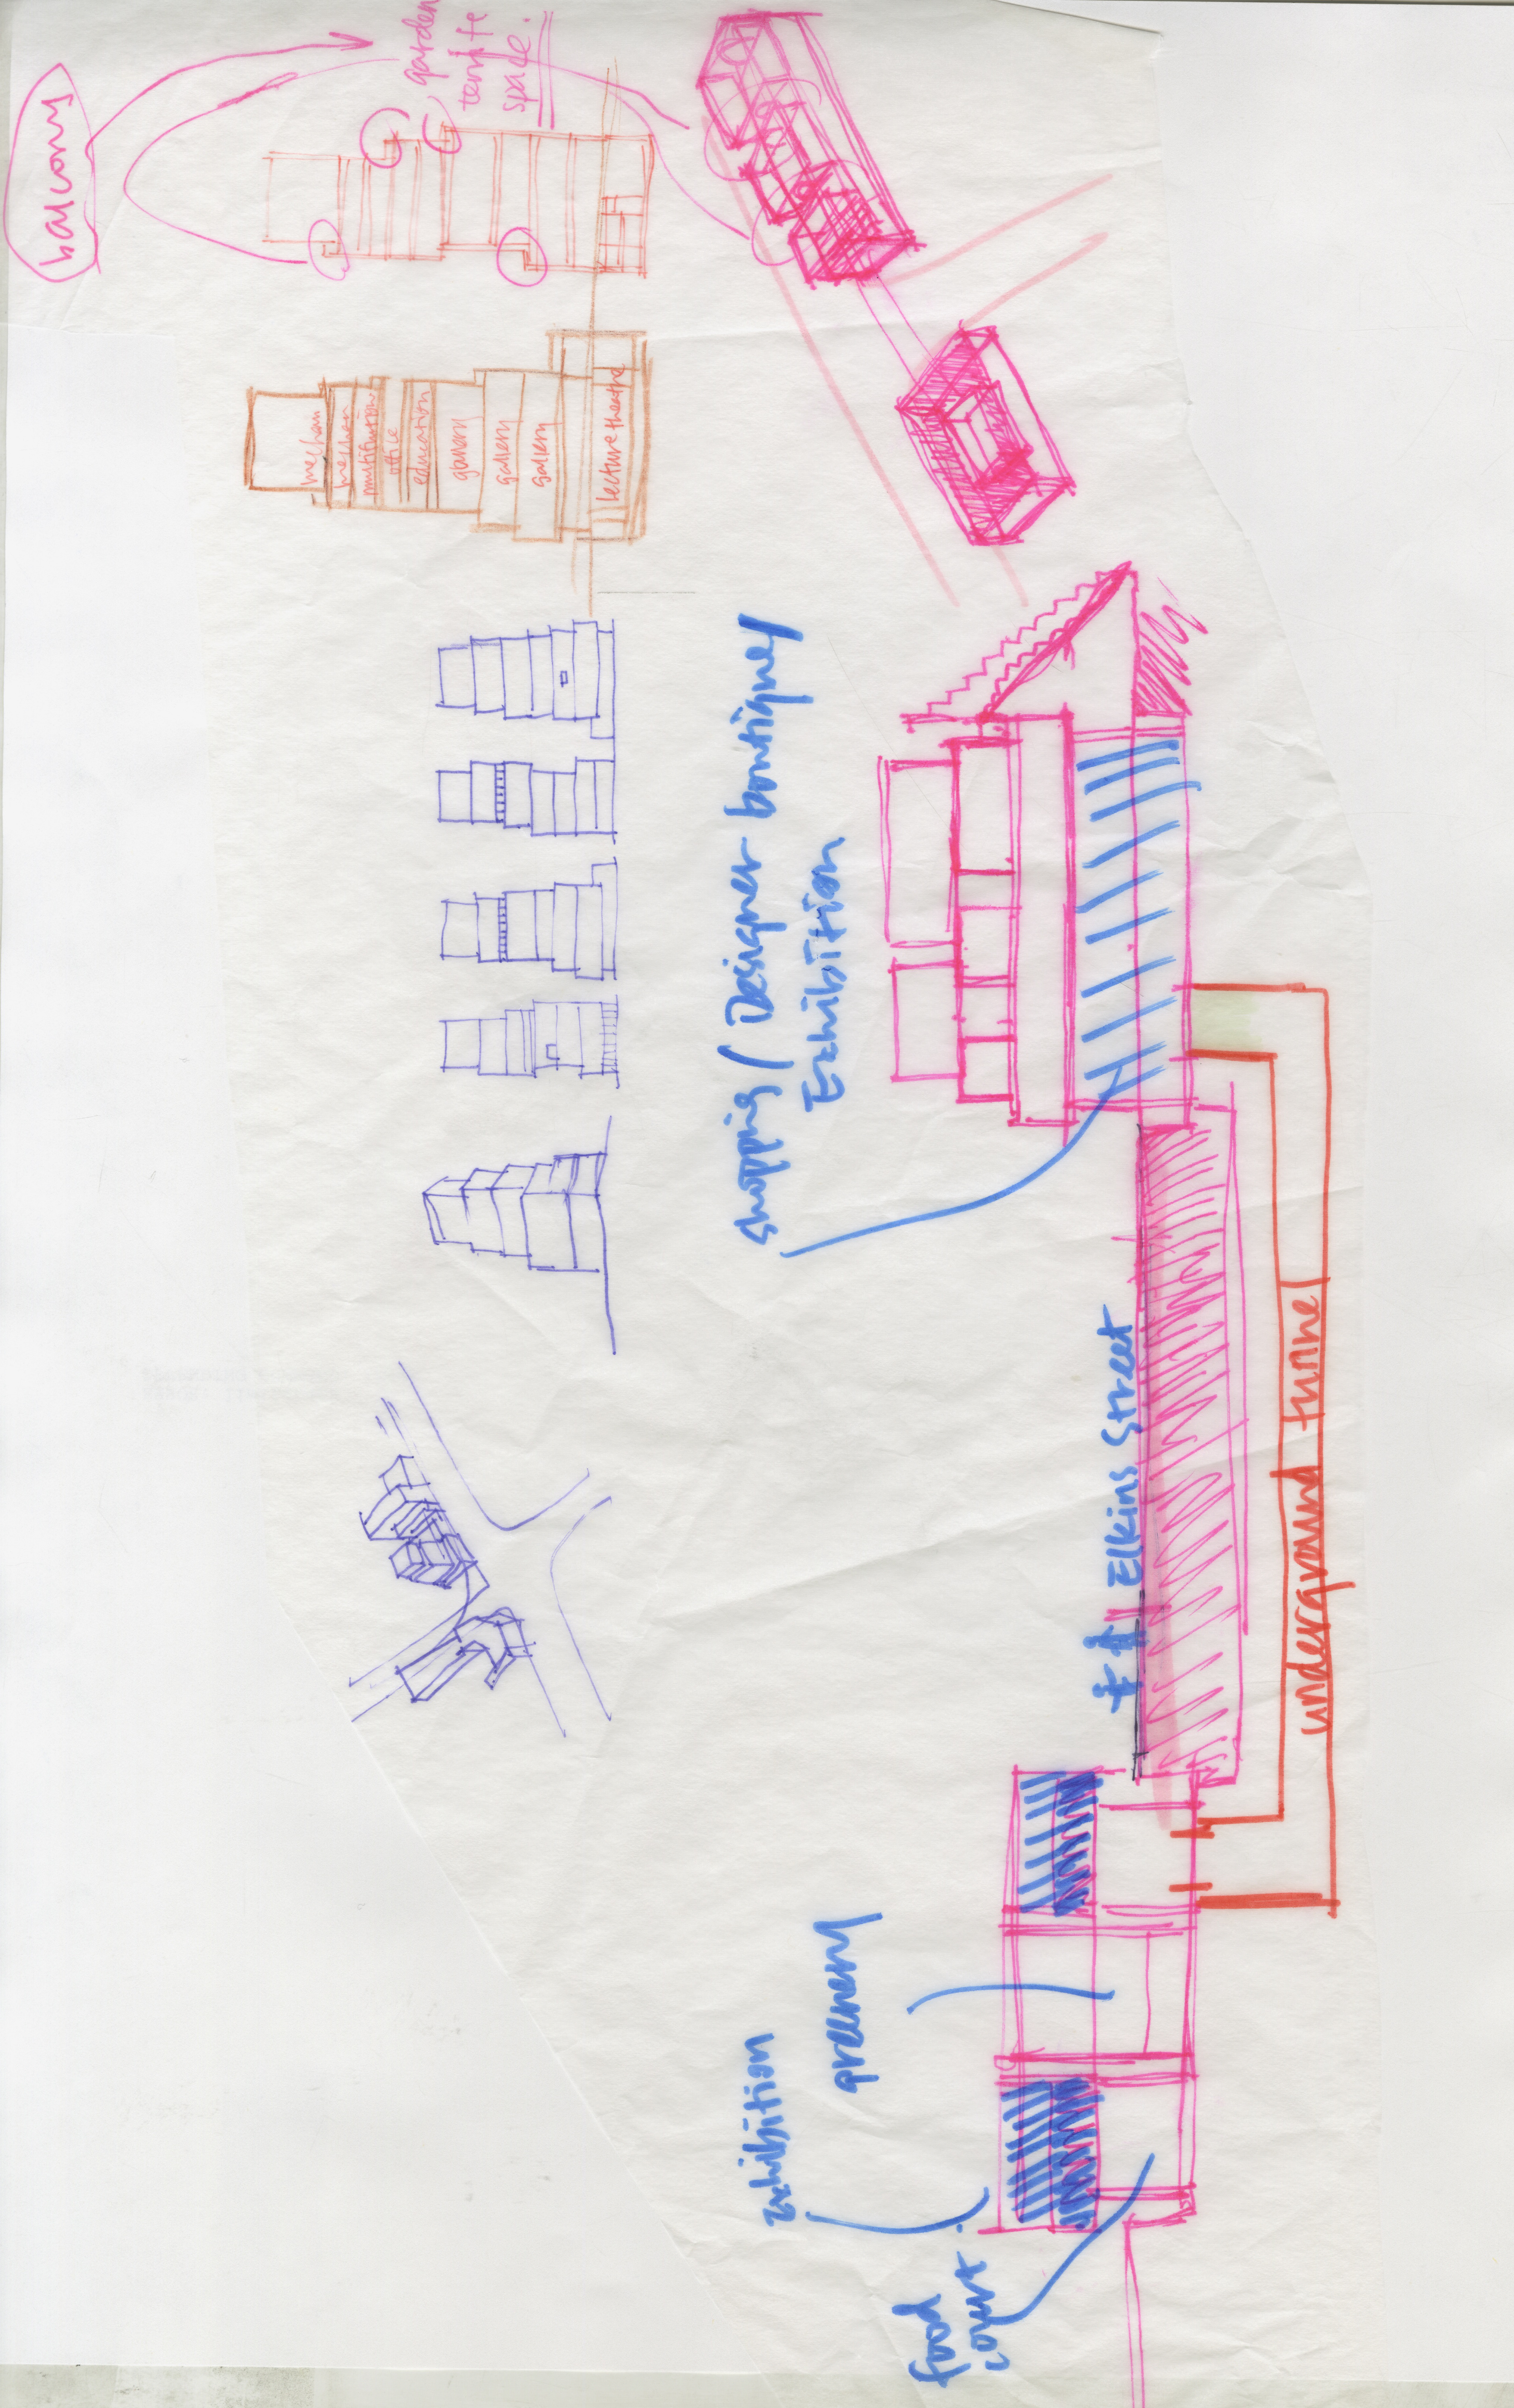 balcony
garden
space.
mechan
mechan
multifunction
office
education
gallery
gallery
gallery
lecture theatre
shopping / Designer boutique /
Exhibition
Elkins Street
underground tunnel
greenery
exhibition
food
court